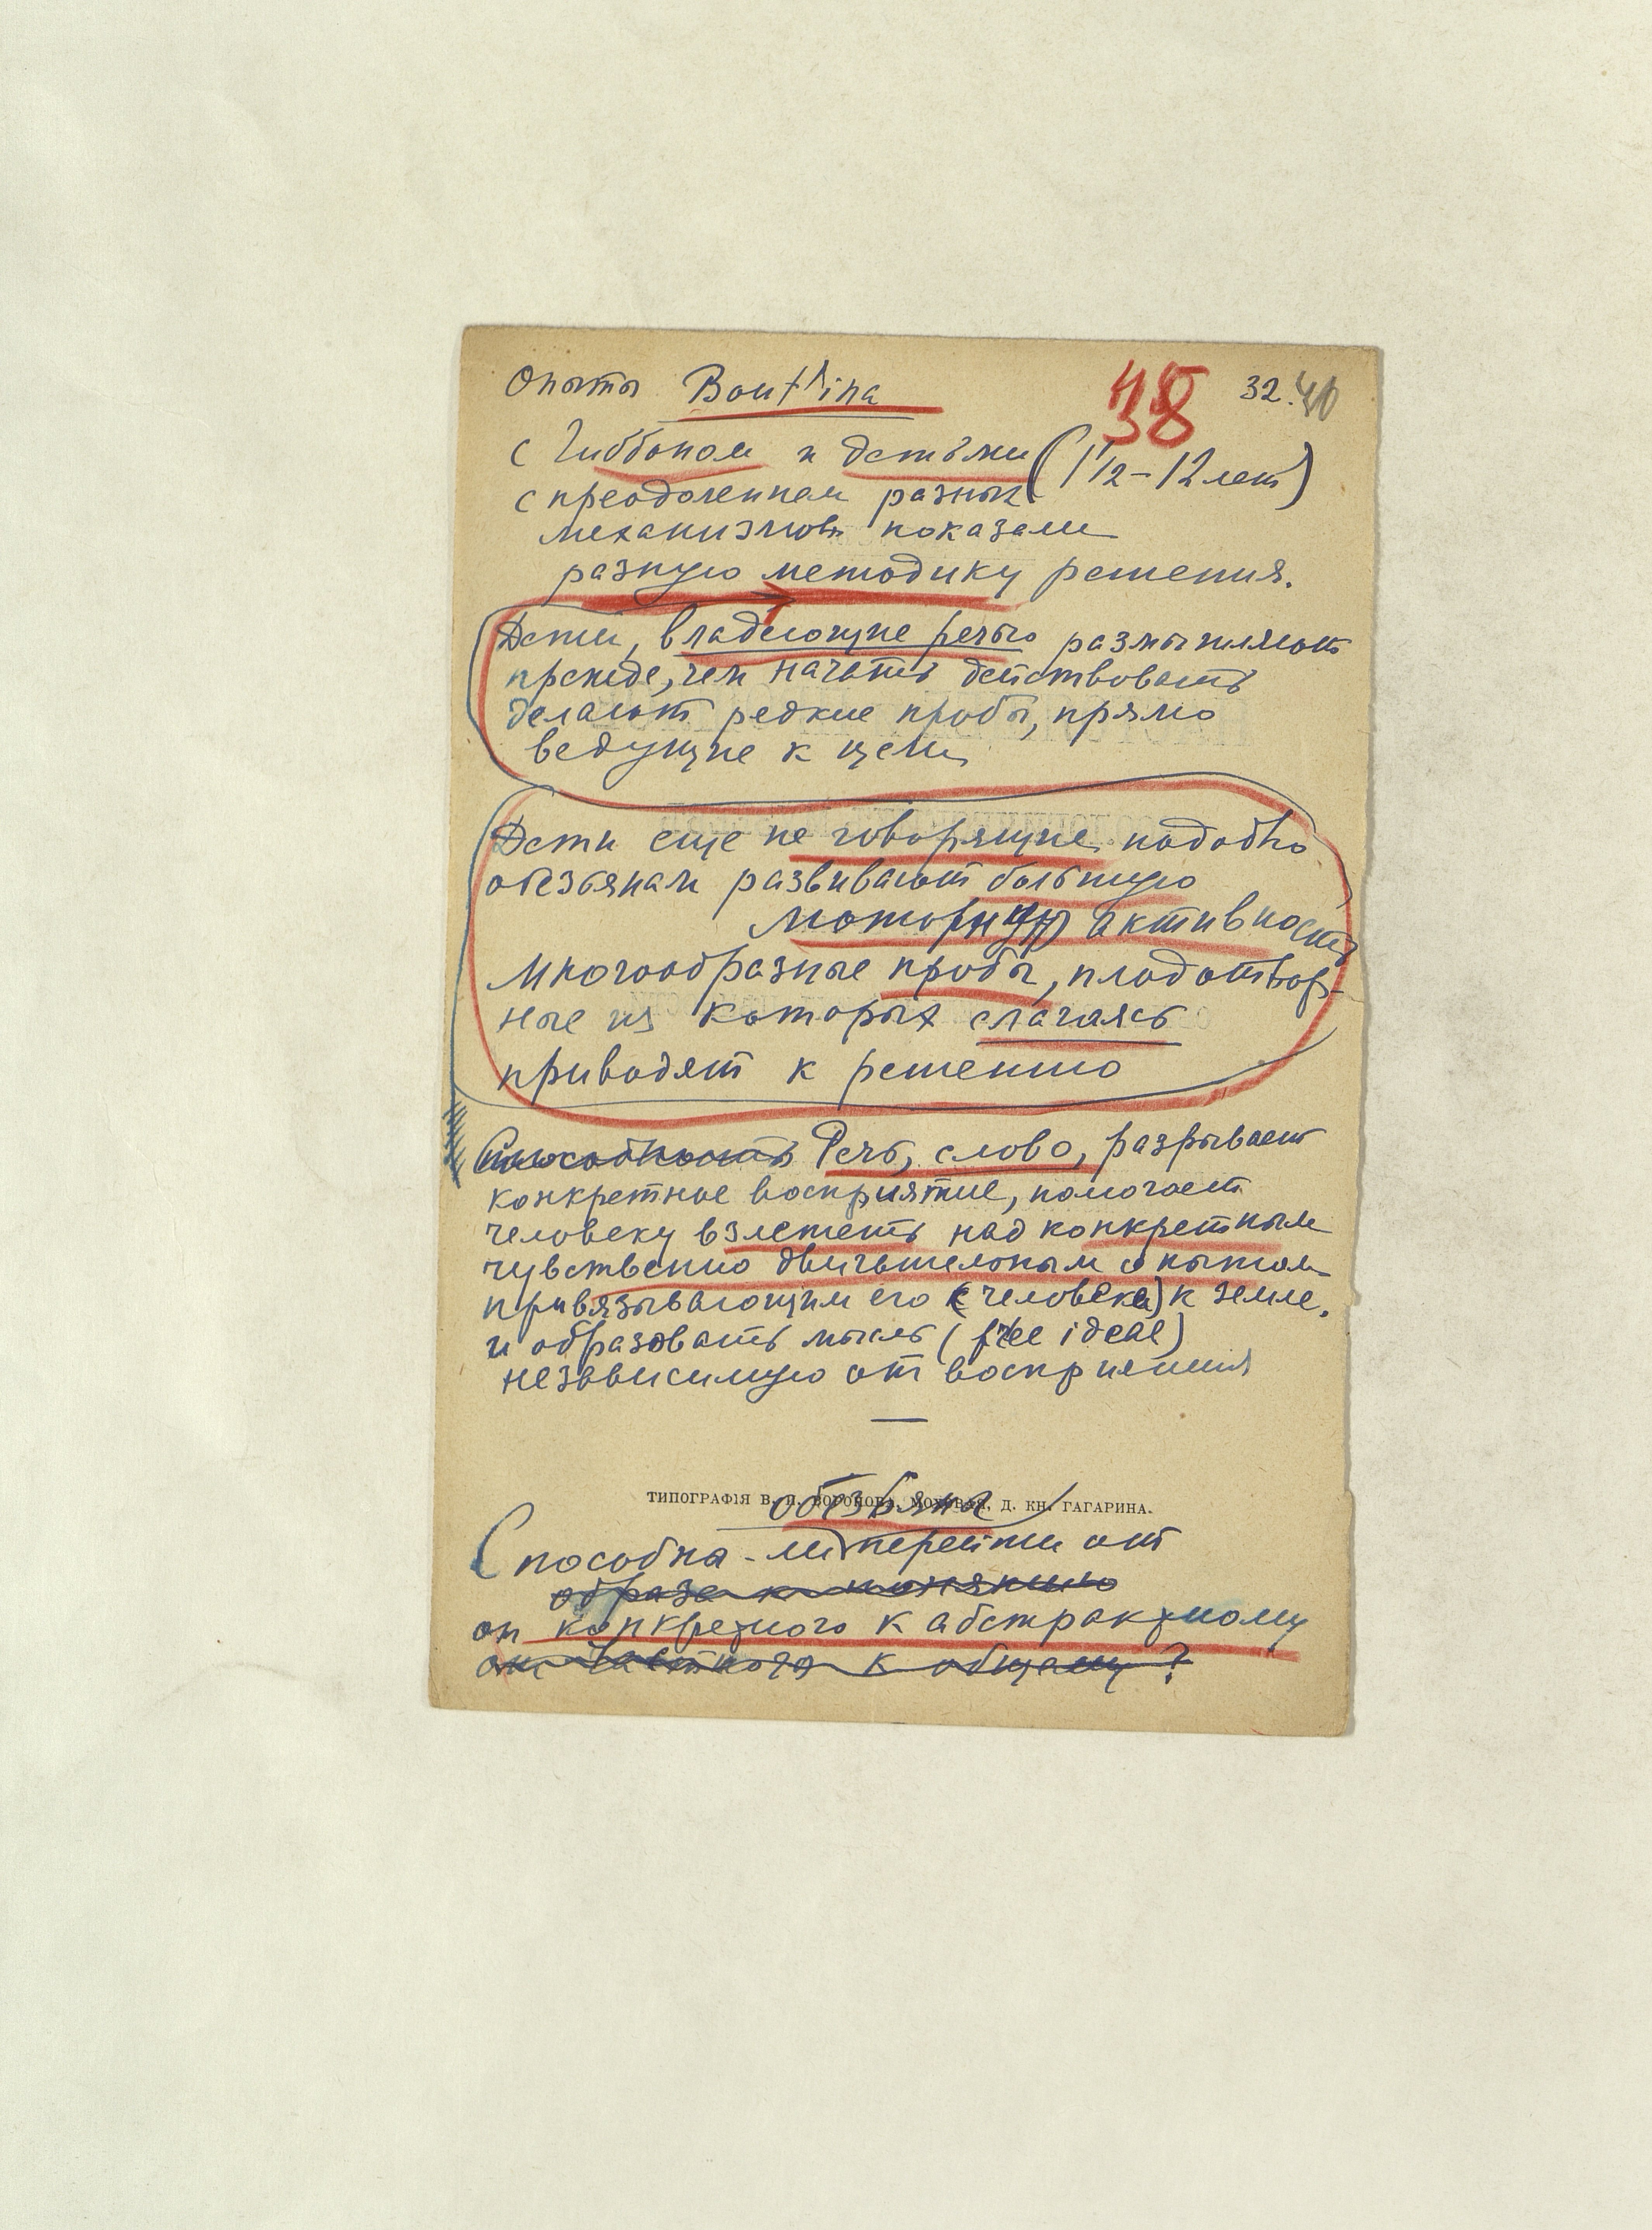 Опыты Bout'ana 38 32.40
с Гиббоном и детьми (1 1/2 – 12 лет)
с преодолением разных
механизмов показали
разную методику решения.
Дети, владеющие речью размышляют
прежде, чем начать действовать
делают редкие пробы, прямо
ведущие к цели
Дети еще не говорящие, подобно
обезьянам развивают большую
моторную активность
многообразные пробы, плодотвор-
ные из которых слагаясь
приводят к решению
Способность Речь, слово, разрывает
конкретное восприятие, помогает
человеку взлететь над конкретным
чувственно двигательным опытом
привязывающим его (человека) к земле.
и образовать мысль (free ideal)
независимую от восприятия
—
ТИПОГРАФІЯ В. П. ВОРОНОВА, МОХОВАЯ, Д. КН. ГАГАРИНА.
обезьяна
Способна-ли перейти от
образа к понятию
от конкретного к абстрактному
от частного к общему?